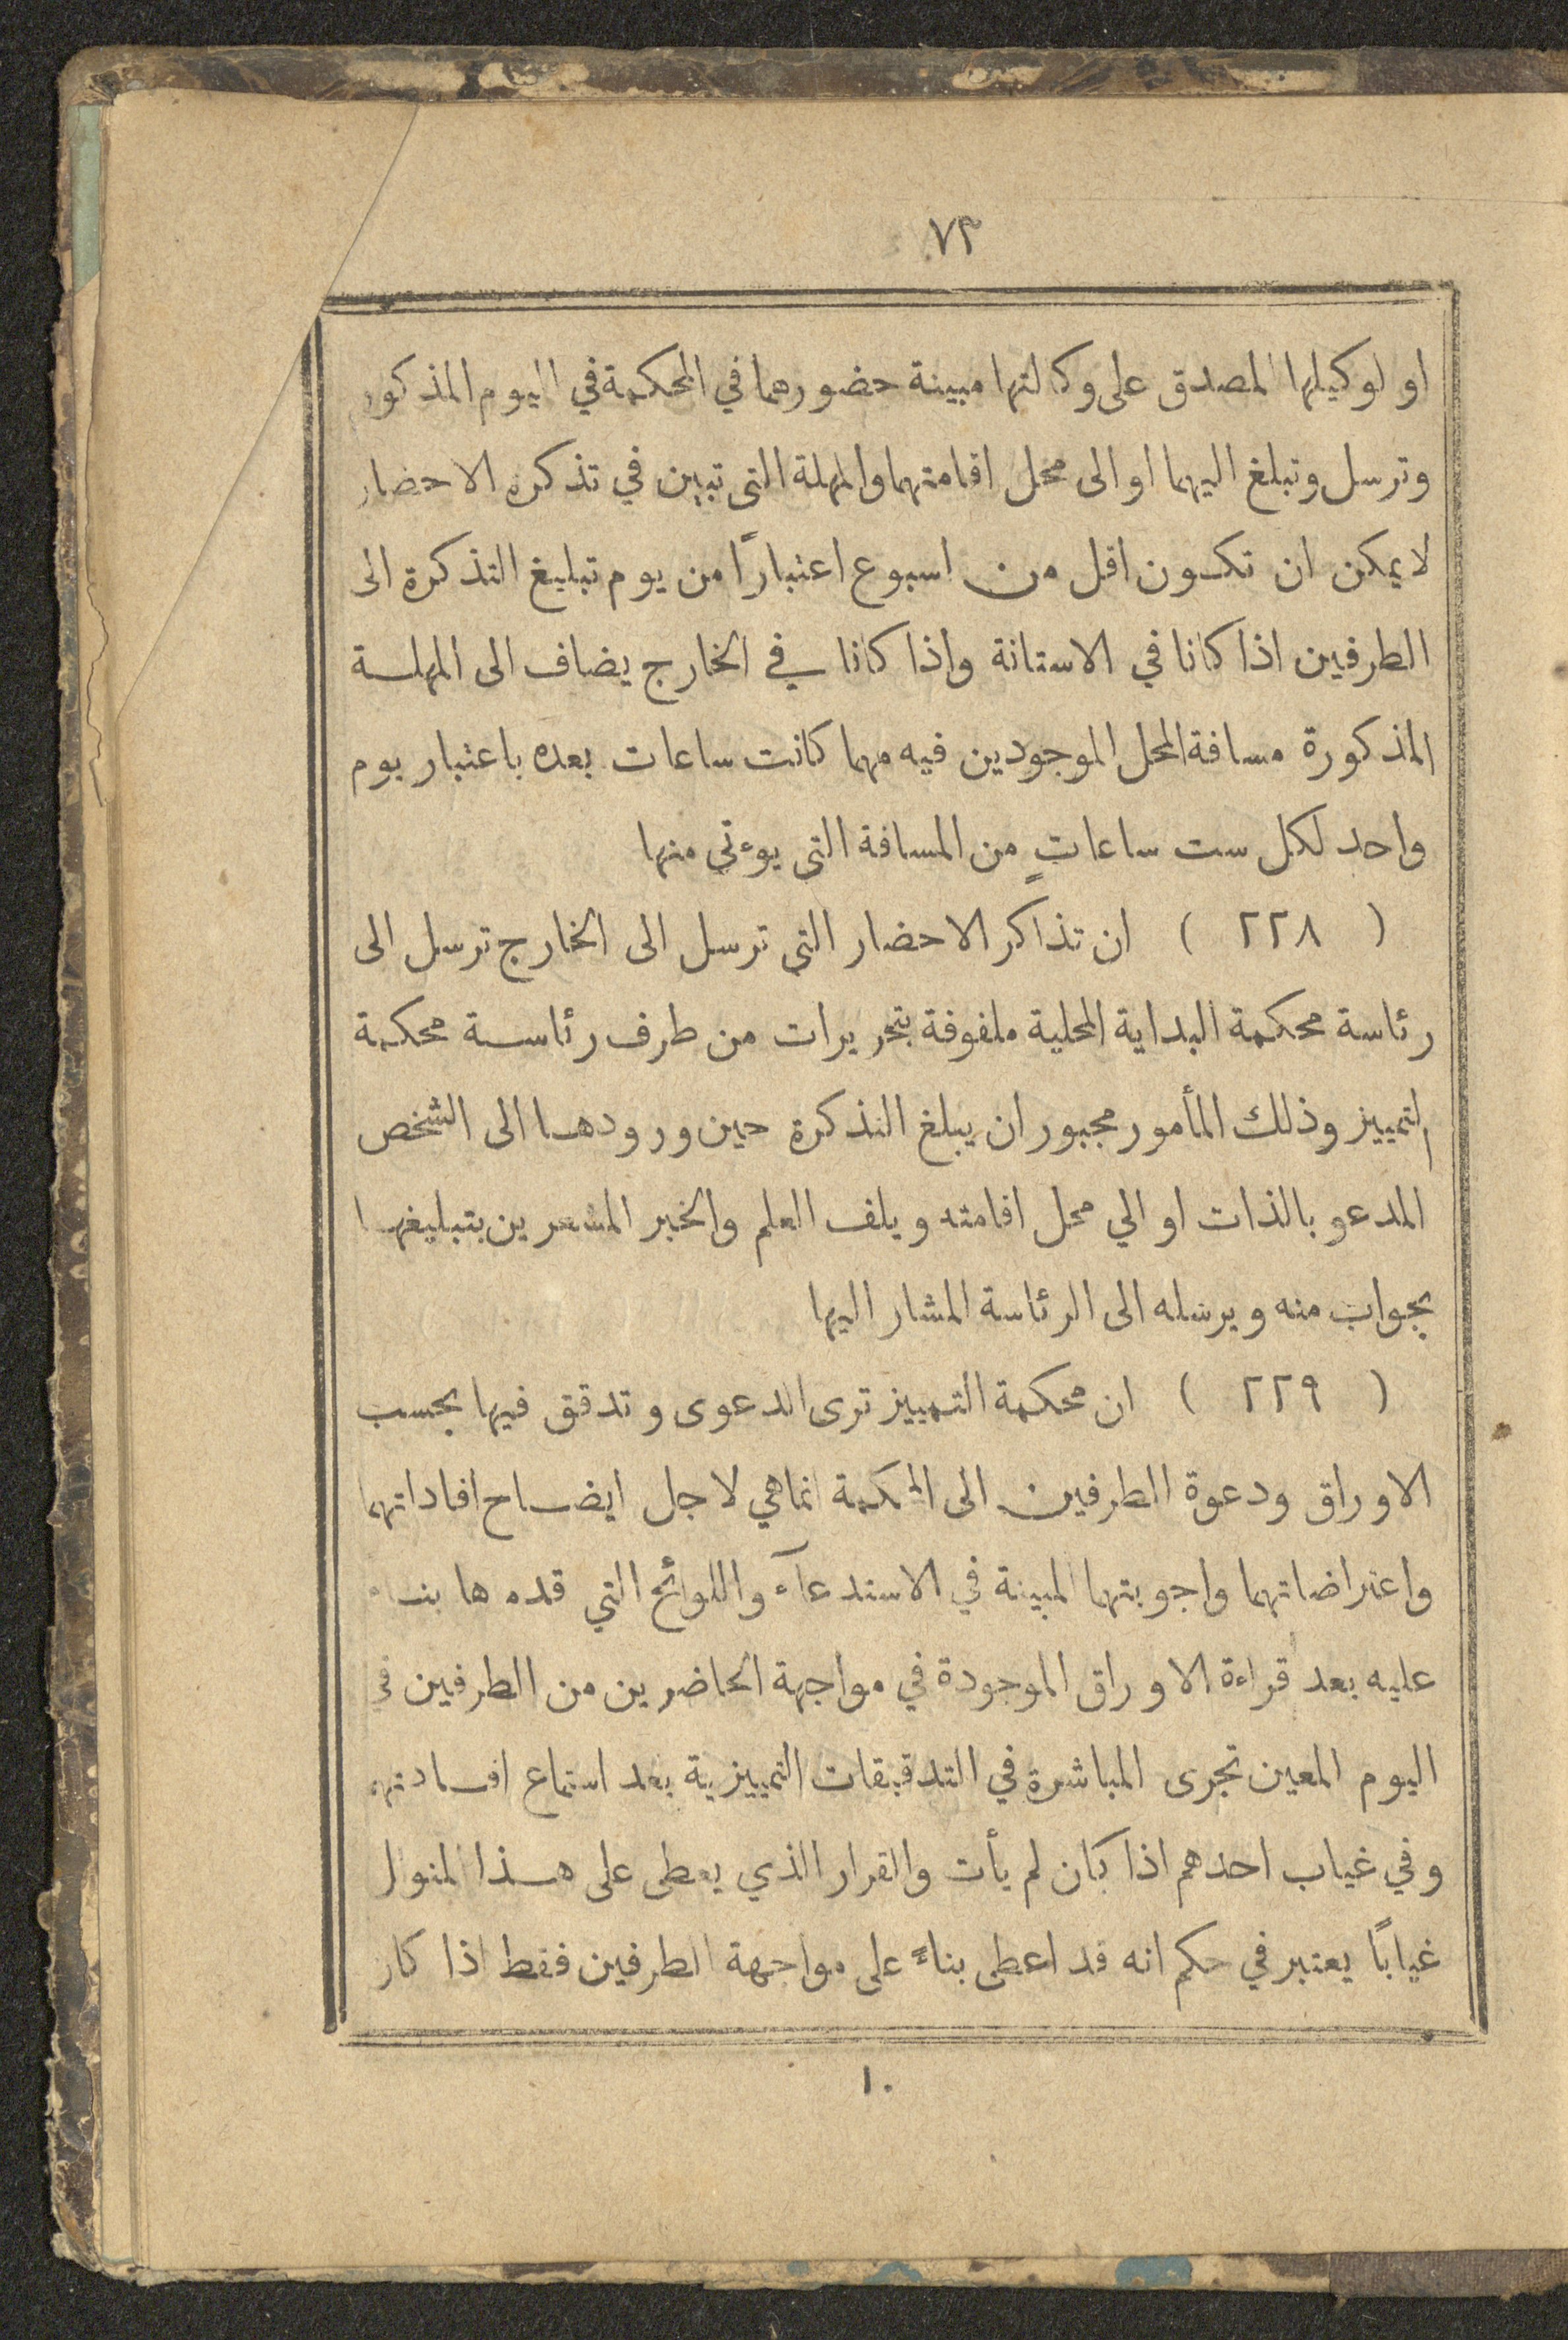 ٧٣
او لوكيلها المصدق على وكالتها مبينة حضورهما في المحكمة في اليوم المذكور
وترسل وتبلغ اليهما او الى محل اقامتهما والمهلة التى تبين في تذكرة الاحضار
لايمكن ان تكون اقل من اسبوع اعتباراً من يوم تبليغ التذكرة الى
الطرفين اذا كانا في الاستانة واذا كانا في الخارج يضاف الى المهلة
المذكورة مسافة المحل الموجودين فيه مهما كانت ساعات بعده باعتبار يوم
واحد لكل ست ساعاتٍ من المسافة التى يوءتى منها
( ٢٢٨ ) ان تذاكر الاحضار التى ترسل الى الخارج ترسل الى
رئاسة محكمة البداية المحلية ملفوفة بتحريرات من طرف رئاسة محكمة
التمييز وذلك المأمور مجبور ان يبلغ التذكرة حين ورودها الى الشخص
المدعو بالذات او الي محل اقامته ويلف العلم والخبر المشعرين بتبليغها
بجواب منه ويرسله الى الرئاسة المشار اليها
( ٢٢٩ ) ان محكمة التمييز ترى الدعوى وتدقق فيها بحسب
الاوراق ودعوة الطرفين الى المحكمة انما هي لاجل ايضاح افاداتهما
واعتراضاتهما واجوبتهما المبينة في الاستدعآء واللوائح التي قدماها بناء
عليه بعد قراءة الاوراق الموجودة في مواجهة الحاضرين من الطرفين في
اليوم المعين تجرى المباشرة في التدقيقات التمييزية بعد استماع افادتهم
وفي غياب احدهم اذا كان لم يأت والقرار الذي يعطى على هذا المنوال
غياباً يعتبر في حكم انه قد اعطى بناءً على مواجهة الطرفين فقط اذا كان
١٠